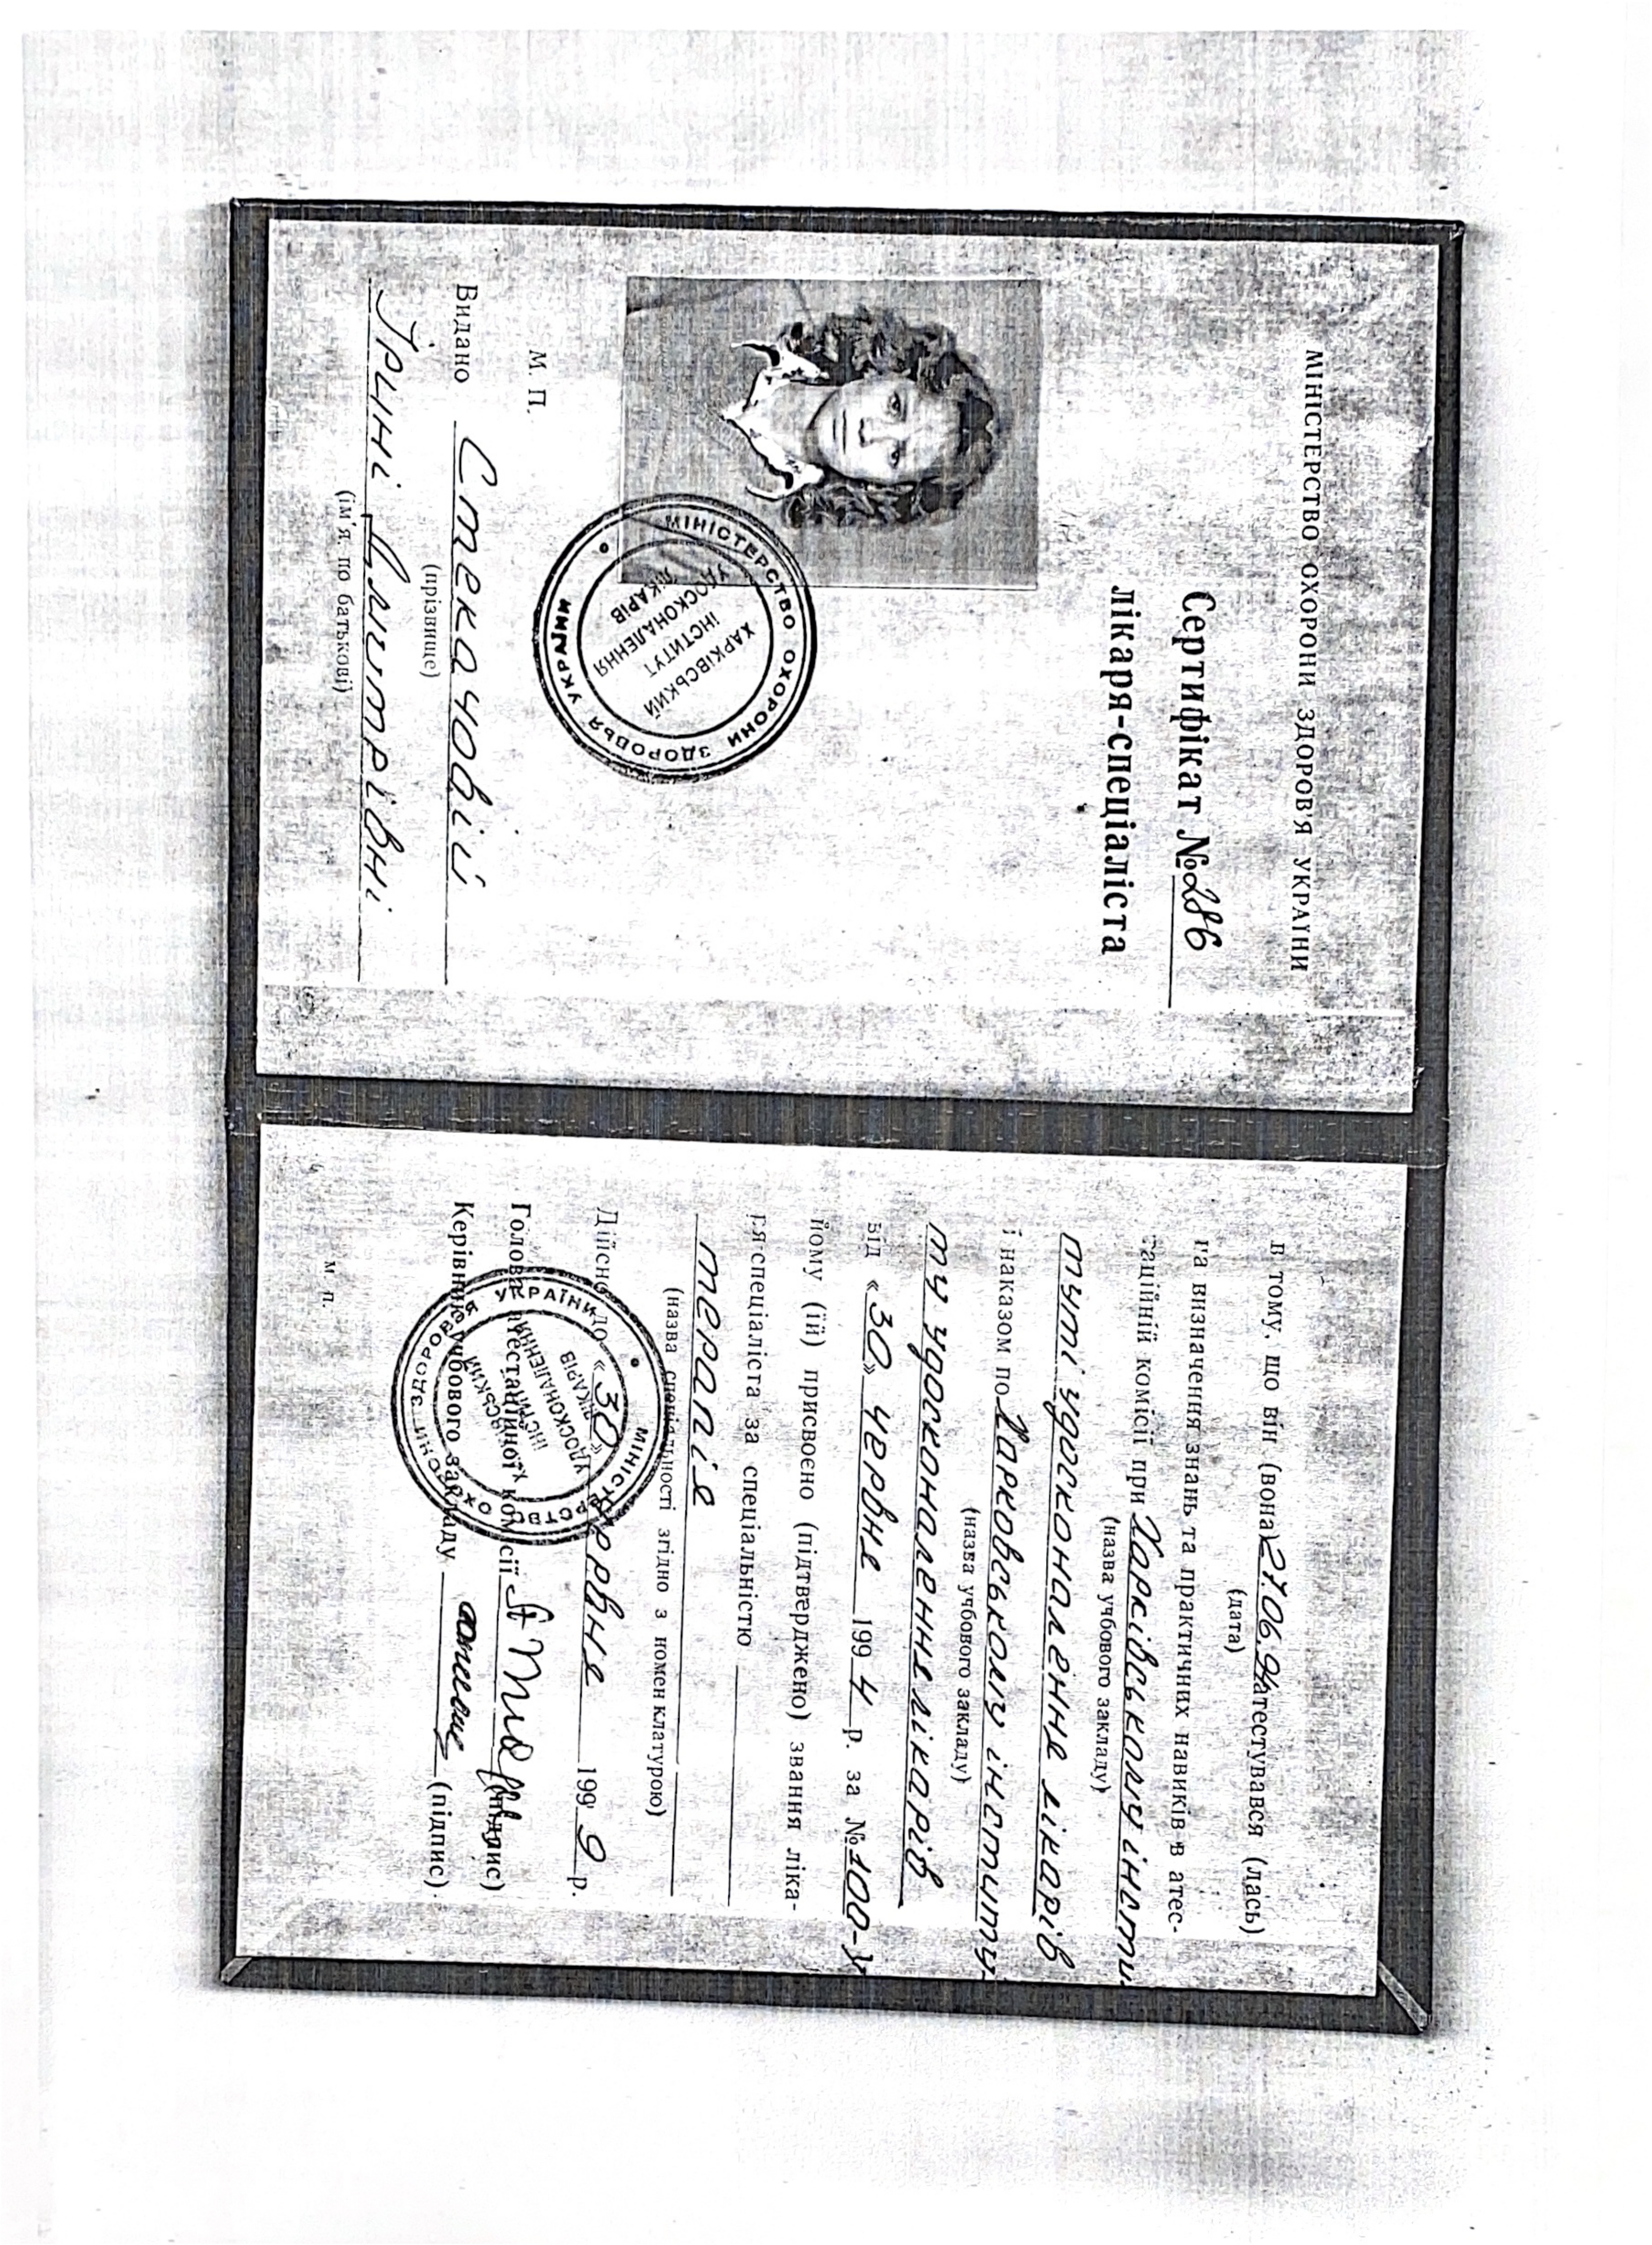 МІНІСТЕРСТВО ОХОРОНИ ЗДОРОВ'Я УКРАЇНИ
Сертифікат №286
лікаря-спеціаліста
МІНІСТЕРСТВО ОХОРОНИ ЗДОРОВЬЯ УКРАЇНИ
ХАРКІВСЬКИЙ
ІНСТИТУТ
УДОСКОНАЛЕННЯ
ЛІКАРІВ
М. П.
Видано Стекачовій
(прізвище)
Ірині Дмитрівні
(ім'я, по батькові)
в тому, що він (вона) 27.06.94 атестувався (лась)
(дата)
на визначення знань та практичних навиків в атес-
таційній комісії при Харківському інсти-
(назва учбового закладу)
туті удосконалення лікарів
і наказом по Харковському інститу-
(назва учбового закладу)
ту удосконалення лікарів
від «30» червня 1994 р. за №100-
йому (їй) присвоєно (підтверджено) звання ліка-
ря спеціаліста за спеціальністю
терапія
(назва спеціальності згідно з номенклатурою)
Дійсно до «30» червня 1999 р.
Голова атестаційної комісії (підпис)
Керівник учбового закладу (підпис)
МІНІСТЕРСТВО ОХОРОНИ ЗДОРОВЬЯ УКРАЇНИ
ІНСТИТУТ
УДОСКОНАЛЕННЯ
ЛІКАРІВ
М. П.